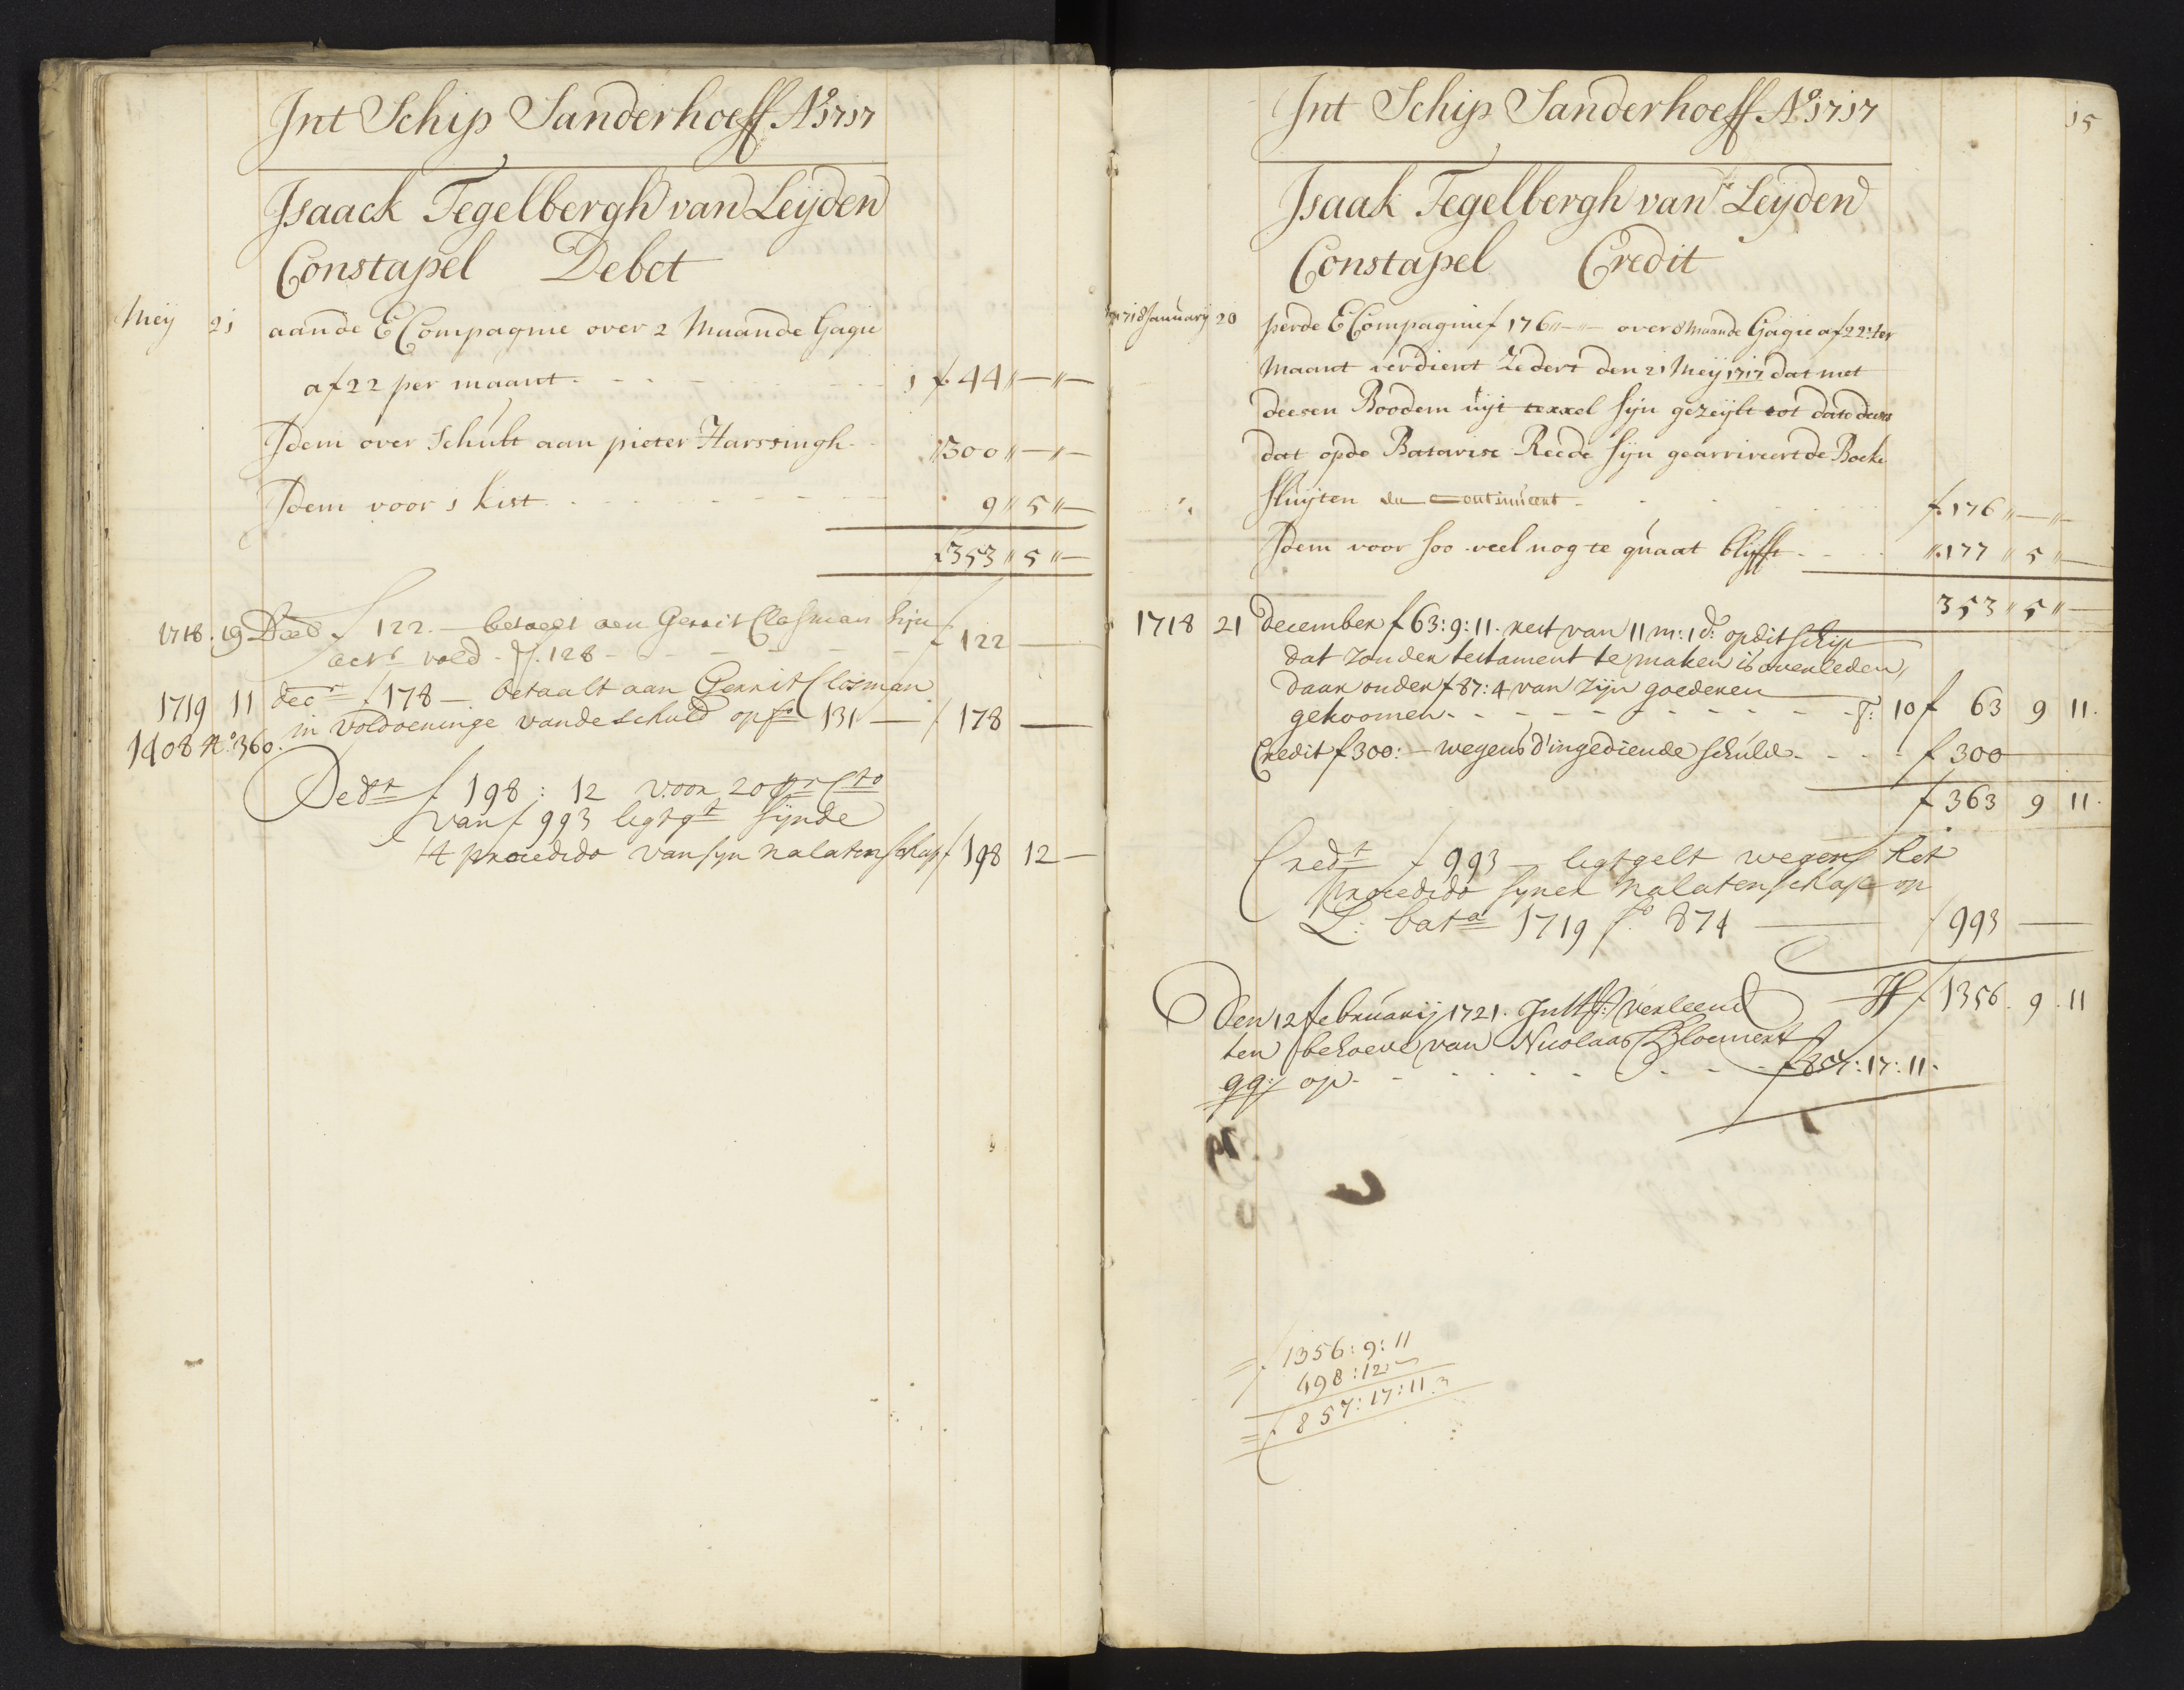 Int Schip Sanderhoeff Ao 1717
Isaack Tegelbergh van Leijden
Constapel Debet
Meij 21 aande E Compagnie over 2 Maande Gagie
a f 22 per maant 1 f 44 " — " —
Idem over Schult aan pieter Harssingh " 300 " — " —
Idem voor 1 kist 9 " 5 " —
f 353 " 5 " —
1718 . 19 f 122. — betaelt aen Gerrit Clasman sijn
f 122 —
1719 11 decr f 178 — betaalt aan Gerrit Closman
in voldoeninge vande schuld op fo 131 — f 178 —
1408 No 360.
Debt f 198 : 12 voor 20 pr Cto
van f 993 ligtgt sijnde
't procedido van sijn nalatenschap f 198 12 —
Int Schip Sanderhoeff Ao 1717 15
Isaak Tegelbergh van Leijden
Constapel Credit
1718 January 20 perde E Compagnie f 176 " — " — over 8 maande Gagie a f 22: ter
Maant verdient Zedert den 21 Meij 1717 dat met
deesen Boodem uijt texxel sijn gezeijlt tot dato deses
dat opde Batavise Reede sijn gearriveert de Boeke
sluijten en continueert f. 176 " — " —
Idem voor soo veel nog te quaat blijfft ". 177 " 5 " —
353 " 5 " —
1718 21 december f 63: 9: 11. rest van 11 m: 1 d: op dit schip
dat zonder testament te maken is overleden,
daar onder f 87: 4 van zijn goederen
gekoomen - - - 10 f 63 9 11.
Credit f 300: — wegens d'ingediende schuld - - - f 300 —
f 363 9 11.
Credt f 993 — ligtgelt wegens het
procedido syner nalatenschap op
L: bata 1719 fo. 874 — f 993 —
f 1356. 9. 11
Den 12 februarij 1721. verleend
ten behoeve van Nicolaas Bloemert
op - - - f 857: 17: 11.
f 1356: 9: 11
498: 12 —
f 857: 17: 11.